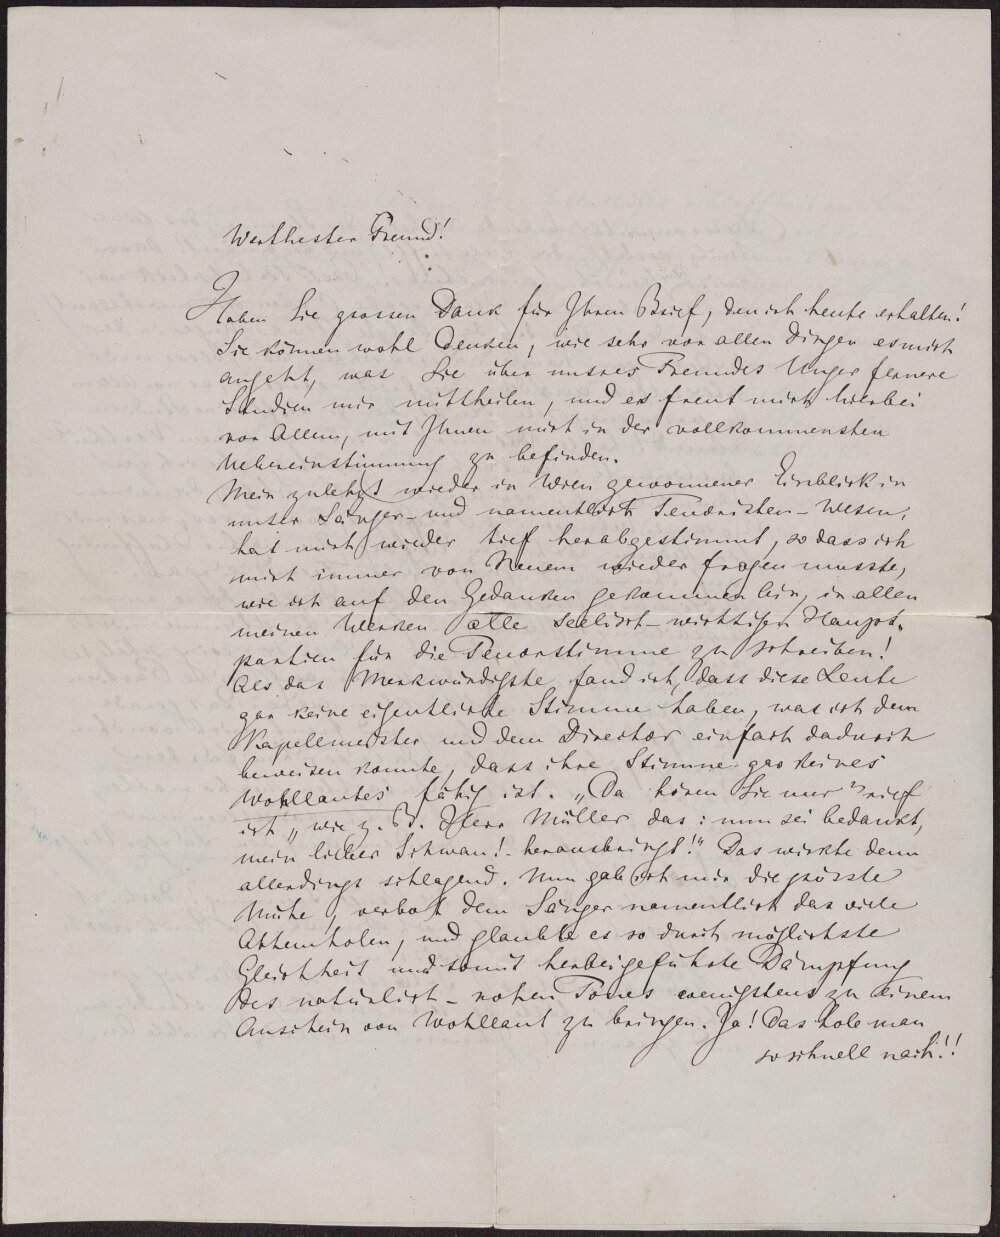 Werthester Freund!
Haben Sie grossen Dank für Ihren Brief, den ich heute erhalten!
Sie können wohl denken, wie sehr vor allen Dingen es mich
angeht, was Sie über unsres Freundes Unger fernere
Studien mir mittheilen, und es freut mich hierbei
vor Allem, mit Ihnen mich in der vollkommensten
Uebereinstimmung zu befinden.
Mein zuletzt wieder in Wien gewonnener Einblick in
unser Sänger- und namentlich Tenoristen-Wesen,
hat mich wieder tief herabgestimmt, so dass ich
mich immer von Neuem wieder fragen musste,
wie ich auf den Gedanken gekommen bin, in allen
meinen Werken alle seelisch-wichtigen Haupt-
partien für die Tenorstimme zu schreiben!
Als das Merkwürdigste fand ich, dass diese Leute
gar keine eigentliche Stimme haben, was ich dem
Kapellmeister und dem Director einfach dadurch
beweisen konnte, dass ihre Stimme gar keines
Wohllautes fähig ist. „Da hören Sie nur" rief
ich „wie z. B. Herr Müller das: nun sei bedankt,
mein lieber Schwan! - herausbringt!" Das wirkte denn
allerdings schlagend. Nun gab ich mir die grösste
Mühe, verbot dem Sänger namentlich das viele
Athemholen, und glaubte es so durch möglichste
Gleichheit und somit herbeigeführte Dämpfung
des natürlich-rohen Tones wenigstens zu einem
Anschein von Wohllaut zu bringen. Ja! Das hole man
so schnell nach!!